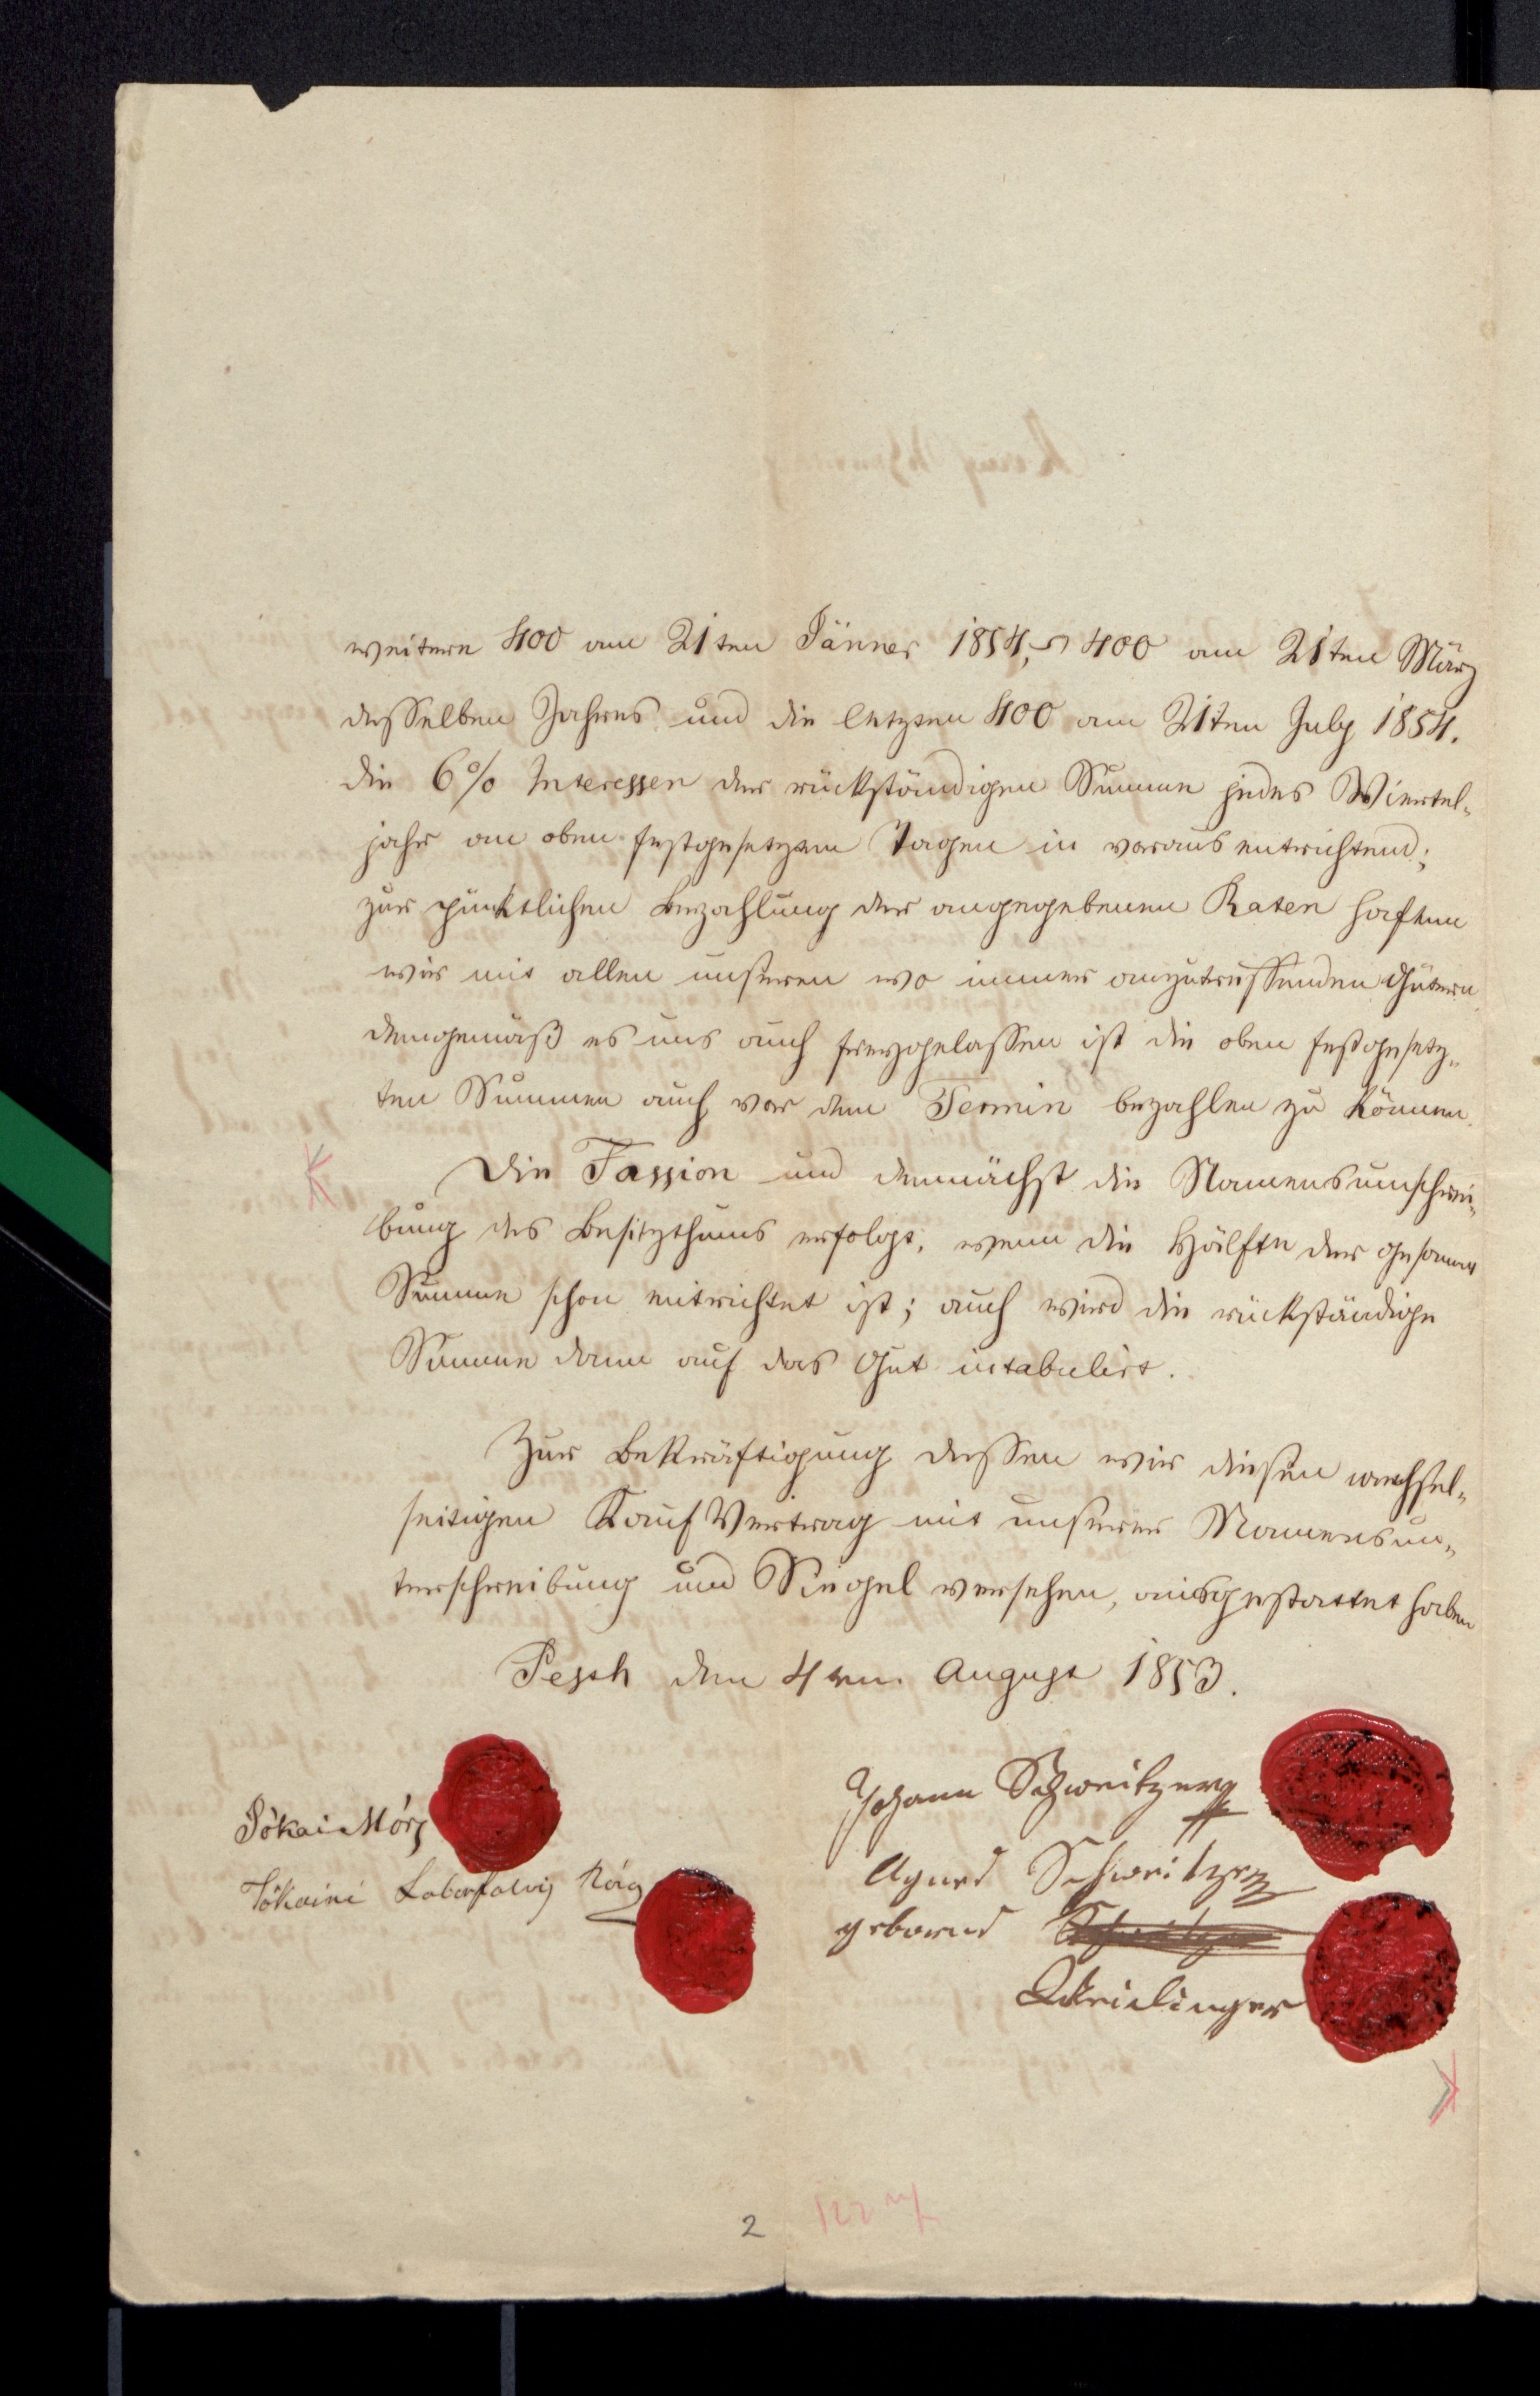 weitere 400 am 21ten Jänner 1854, 400 am 21ten März
desselben Jahres und die letzten 400 am 21ten July 1854.
die 6% Interessen der rückständigen Summe jedes Viertel„
jahr an oben festgesetzten Tagen in voraus entrichtend;
zur pünktlichen Bezahlung der angegebenen Raten haften
wir mit allen unseren wo immer anzutreffenden Gütern
demgemäß es uns auch freygelassen ist die oben festgesetz„
ten Summen auch vor dem Termin bezahlen zu können.
Die Fassion und demnächst die Namensumschrei„
bung des Besitzthums erfolgt, wenn die Hälfte der gesammt
Summe schon entrichtet ist; auch wird die rückständige
Summe dann auf das Gut intabulirt.
Zur Bekräftigung dessen wir diesen wechsel„
seitigen Kauf Vertrag mit unserer Namensun„
terschreibung und Siegel versehen, ausgestattet haben
Pesth den 4ten August 1853.
Jókai Mór
Jókainé Laborfalvy Róza
Johann Schweitzer
Agnes Schweitzer
geborne
2